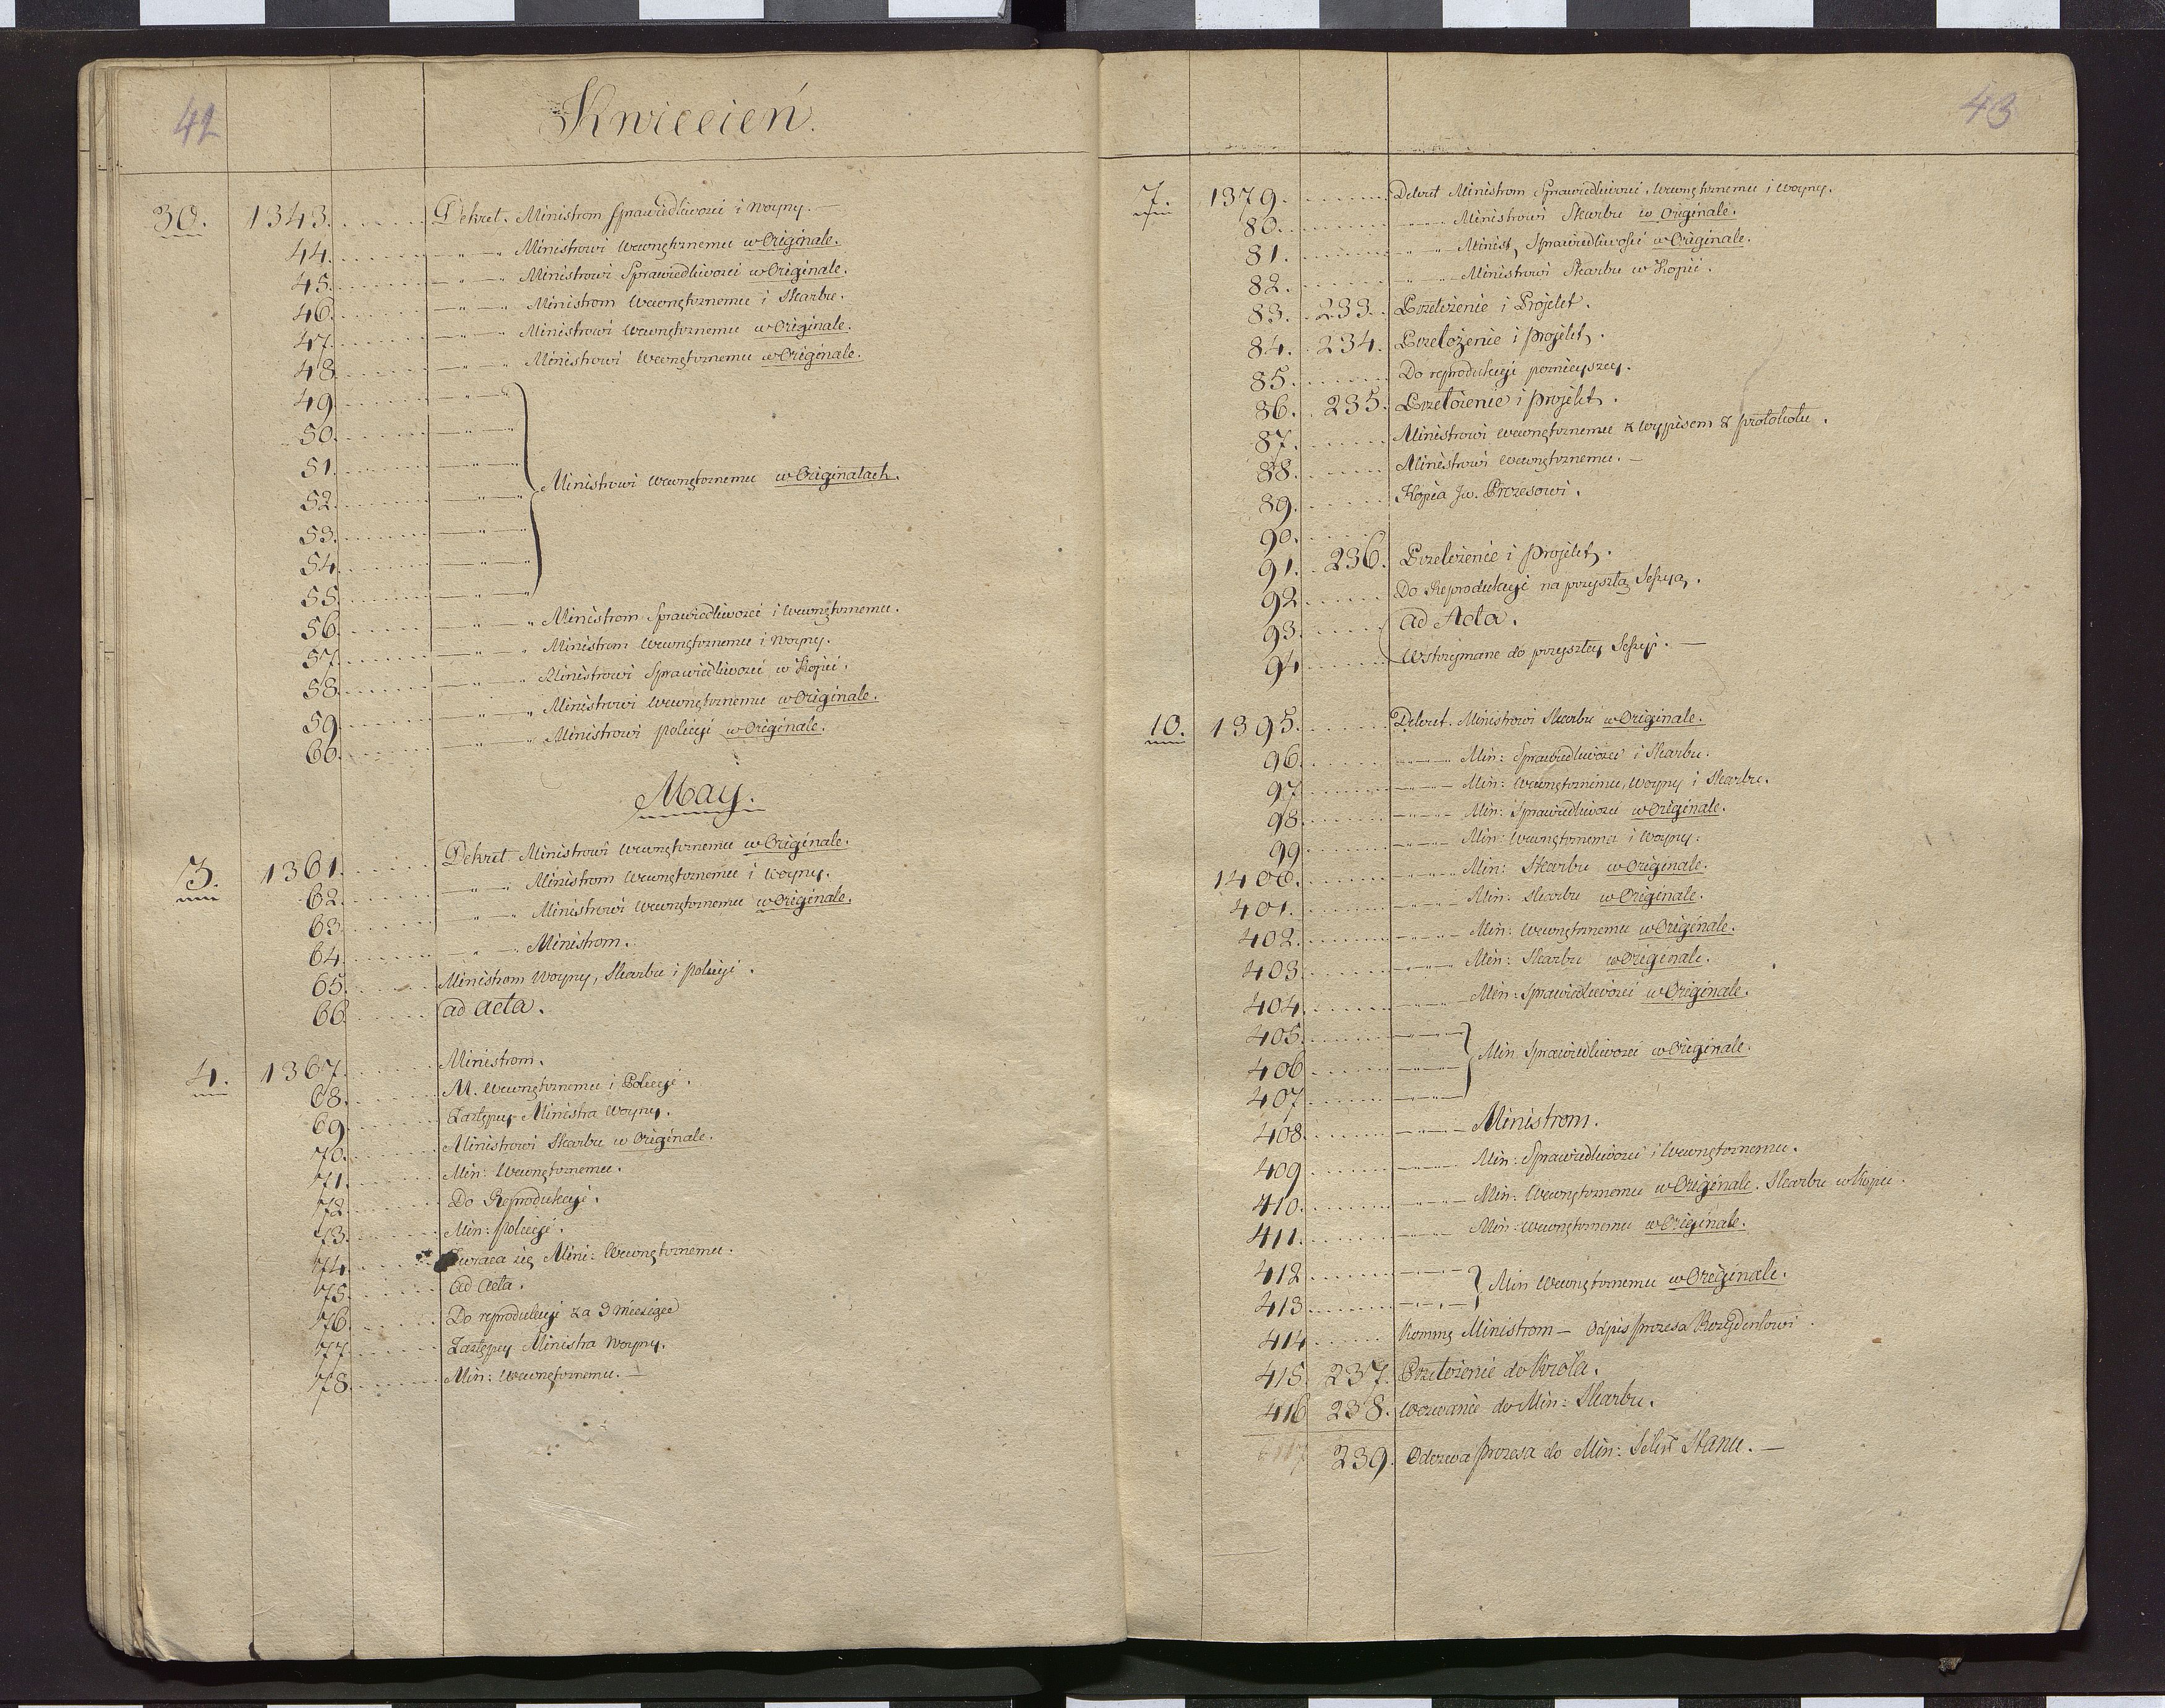 42
Kwiecień.
30. 1343. Dekret. Ministrom Sprawiedliwości i Woyny. —
44. — „ — „ Ministrowi Wewnętrznemu w Originale.
45. — „ — Ministrowi Sprawiedliwości w Originale.
46. — „ — Ministrom Wewnętrznemu i Skarbu.
47. — „ — Ministrowi Wewnętrznemu w Originale.
48. — „ — „ Ministrowi Wewnętrznemu w Originale.
49. — „ —
50. — „ —
51. — „ —
52. — „ — Ministrowi Wewnętrznemu w Originałach.
53. — „ —
54. — „ —
55. — „ —
56. — „ — „ Ministrom Sprawiedliwości i Wewnętrznemu.
57. — „ — „ Ministrom Wewnętrznemu i Woyny.
58. — „ — „ Ministrowi Sprawiedliwości w Kopii.
59. — „ — „ Ministrowi Wewnętrznemu w Originale.
60. — „ — Ministrowi Policyi w Originale.
May.
3. 1361. Dekret Ministrowi Wewnętrznemu w Originale.
62. — „ — „ Ministrom Wewnętrznemu i Woyny.
63. — „ — „ Ministrowi Wewnętrznemu w Originale.
64. — „ — Ministrom.
65. Ministrom Woyny, Skarbu i Policyi.
66. ad Acta.
4. 1367. Ministrom.
68. M. Wewnętrznemu i Policyi.
69. Zastępcy Ministra Woyny.
70. Ministrowi Skarbu w Originale.
71. Min: Wewnętrznemu.
72. Do Reprodukcyi.
73. Min: Policyi.
74. Zwraca się Mini: Wewnętrznemu.
75. Ad Acta.
76. Do reprodukcyi za 3 miesiące
77. Zastępcy Ministra Woyny.
78. Min: Wewnętrznemu. —
43
7. 1379. Dekret Ministrom Sprawiedliwości, Wewnętrznemu i Woyny.
80. Ministrowi Skarbu w Originale.
81. Minist, Sprawiedliwości w Originale.
82. Ministrowi Skarbu w Kopii.
83. 233. Przełożenie i Projekt.
84. 234. Przełożenie i projekt.
85. Do reprodukcyi poznieyszey.
86. 235. Przełożenie i projekt.
87. Ministrowi Wewnętrznemu z wypisem z protokołu.
88. Ministrowi Wewnętrznemu. —
89. Kopia Jw. Prezesowi.
90.
91. 236. Przełożenie i projekt.
92. Do Reprodukcyi na przyszłą Sessyą.
93. ad Acta.
94 Wstrzymane do przyszłey Sessyi. —
10. 1395. Dekret. Ministrowi Skarbu w Originale.
96. Min: Sprawiedliwości i Skarbu.
97 Min: Wewnętrznemu, Woyny i Skarbu.
98. Min: Sprawiedliwości w Originale.
99 Min: Wewnętrznemu i Woyny.
1400. Min: Skarbu w Originale.
401. Min: Skarbu w Originale.
402. Min: Wewnętrznemu w Originale.
403. Min: Skarbu w Originale.
404. Min: Sprawiedliwości w Originale.
405.
406 Min Sprawiedliwości w Originale.
407
408. Ministrom.
409 Min: Sprawiedliwości i Wewnętrznemu.
410. Min: Wewnętrznemu w Originale. Skarbu w Kopii.
411. Min: Wewnętrznemu w Originale.
412 Min Wewnętrznemu w Originale.
413
414 Ministrom — Odpis prezesa Rezydentowi.
415. 237. Przełożenie do Króla.
416 238. Wezwanie do Min: Skarbu.
239. Odezwa prezesa do Min: Sekr Stanu. —